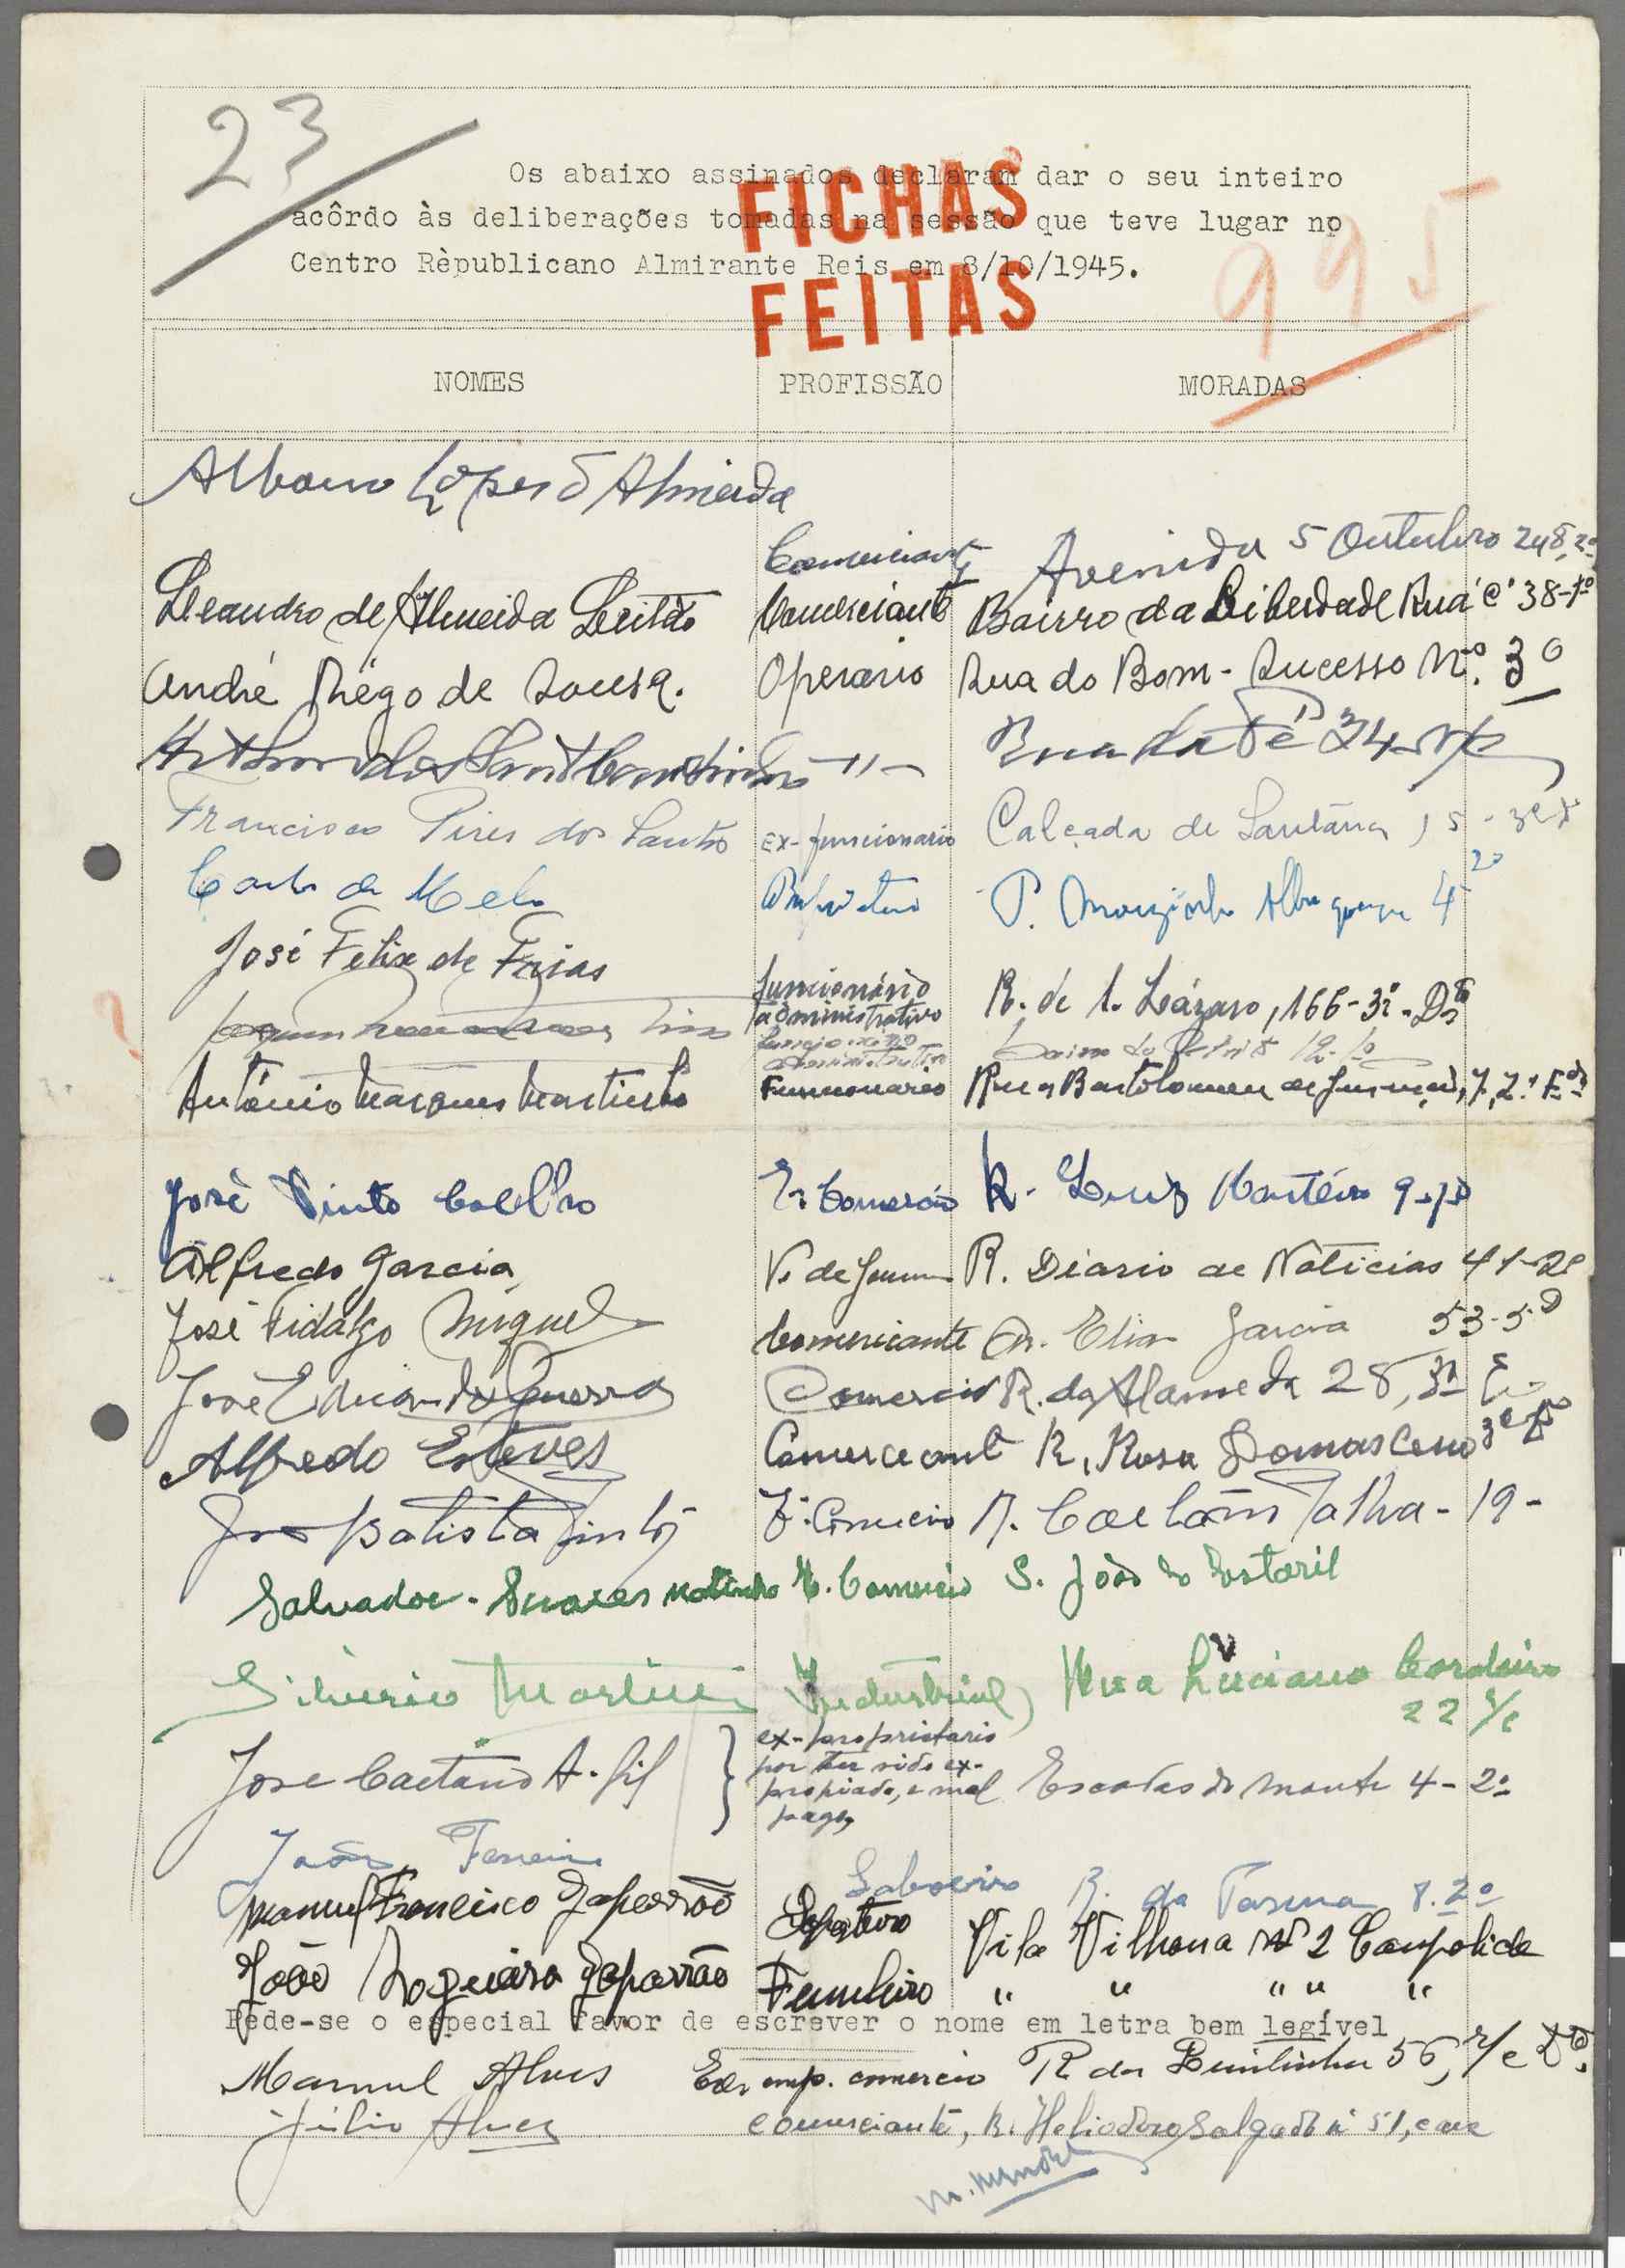 23
Os abaixo assinados declaram dar o seu inteiro
acôrdo às deliberações tomadas na sessão que teve lugar no
Centro Rèpublicano Almirante Reis em 8/10/1945.
FICHAS
FEITAS
995
NOMES PROFISSÃO MORADAS
Albano Lopes d'Almeida
Comerciante Avenida 5 Outubro 248, 2º
Leandro de Almeida Leitão Comerciante Bairro da Liberdade Rua C 38-1º
André Rêgo de Sousa. Operario Rua do Bom-Sucesso Nº. 30
-"- Rua da Fé 34
Francisco Pires dos Santos Ex-funcionario Calçada de Santana, 15-3º
de Melo P. Mouzinho Albuquerque 4-2º
José Felix de Frias funcionário administrativo R. de S. Lázaro, 166-3º-Dto
António Marques Martinho Funcionario Rua Bartolomeu de Gusmão, 7, 2º Edo
José Pinto Coelho E. Comercio R. Luz 9
Alfredo Garcia V. de R. Diario de Noticias 41-2º
José Fidalgo Miguel Comerciante Av. Elias Garcia 53-5º
José Eduardo Guerra Comercio R. da Alameda 28, 3º E.
Alfredo Esteves Comerceante R. Rosa Damasceno 3
Batista Pinto E. Comercio R. Caetano Palha-19-
Salvador-Suares E. Comercio S. João do Estoril
Silverio Martins Industrial Rua Luciano Cordeiro
22 r/c
José Caetano A. Gil } ex-proprietario por ter sido ex-propriado, e mal pago, Escadas do Monte 4-2º
João Ferreira Saboeiro R. da 8.2º
Manuel Francisco Gaparrão Sapateiro Vila Vilhena Nº 2 Campolide
João Nogueira Gaparrão Funileiro " " " " "
Pede-se o especial favor de escrever o nome em letra bem legível
Manuel Alves Ex. emp. comercio R. da 56, r/c Dto.
Júlio Alves comerciante, R. Heliodoro Salgado nº 51, cave